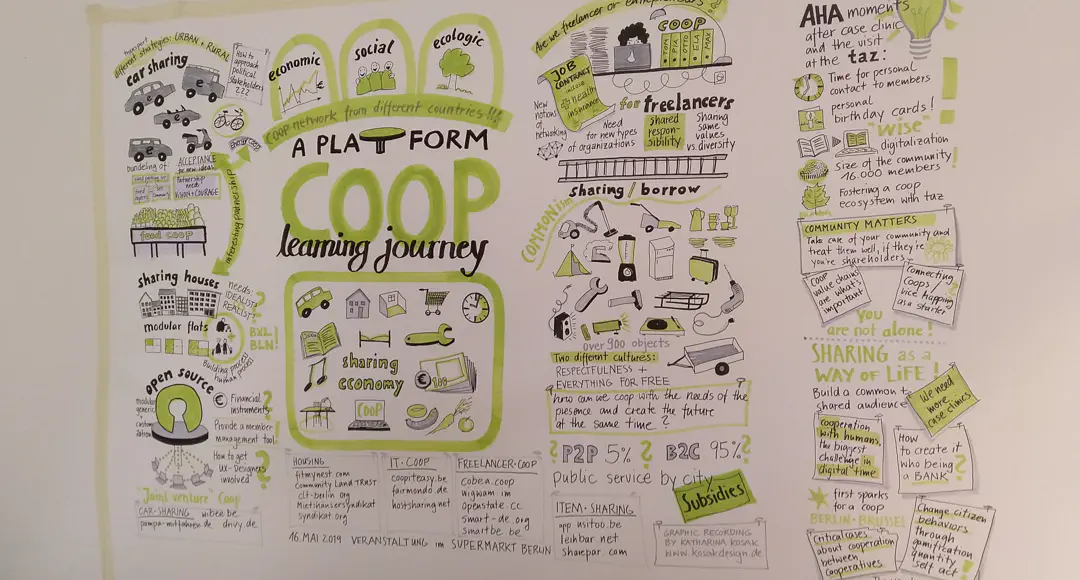 transport
different strategies: URBAN + RURAL
car sharing
How to
approach
political
stakeholders
???
e
e
e
e
bundeling of
ACCEPTANCE
for new ideas
Partnership
needs
KNOW + COURAGE
interesting partnership
food coop
sharing houses
needs:
IDEALIST
REALIST
?
modular flats
BXL
BLN!
Building process
human process
open source
€ Financial
instruments
?
Provide a member
management tool
How to get
UX-Designers
involved
?
"Joint venture" Coop
CAR-SHARING wibee.be
pampa-mitfahren.de drivy.de
economic
€
social
ecologic
COOP network from different countries!!!
A PLATFORM
COOP
learning journey
sharing
economy
€
COOP
HOUSING
fitmynest.com
Community Land TRUST
clt-berlin.org
Miethäusersyndikat
syndikat.org
IT-COOP
coopiteasy.be
fairmondo.de
hostsharing.net
FREELANCER-COOP
cobea.coop
wigwam.im
openstate.cc
smart-de.org
smartbe.be
16.MAI 2019 VERANSTALTUNG im SUPERMARKT BERLIN
Are we freelancer or entrepreneurs
?
COOP
TOM
PIA
OTTO
ELA
MAX
JOB
CONTRACT
health
insurance
New
notions
of
networking
for freelancers
Need
for new types
of organizations
Shared
respon-
sibility
Sharing
same
values
vs. diversity
sharing / borrow
COMMONism
over 900 objects
Two different cultures:
RESPECTFULNESS +
EVERYTHING FOR FREE
how can we coop with the needs of the
presence and create the future
at the same time ?
? P2P 5% ? B2C 95% ?
Public service by city
Subsidies
ITEM-SHARING
app.usitoo.be
leihbar.net
sharepar.com
GRAPHIC RECORDING
BY KATHARINA KOSAK
www.kosakdesign.de
AHA moments
after case clinic
and the visit
at the taz:
Time for personal
contact to members
personal
birthday cards!
"WISE"
digitalization
Size of the community
16.000 members
!
Fostering a coop
ecosystem with taz
COMMUNITY MATTERS
Take care of your community and
treat them well, if they're
you're shareholders
COOP
value chains
are what's
important
Connecting
Coops /
bice happing
as a starter
?
You
are not alone!
SHARING as a
WAY of LIFE!
Build a common +
shared audience
We need
more
case clinics
cooperation
with humans,
the biggest
challenge in
digital time
How
to create it
who being
a BANK?
first sparks
for a coop
BERLIN-BRUSSEL
Critical cases
about cooperation
between
cooperatives
Change citizen
behaviors
through
gamification
quantity
self act
!